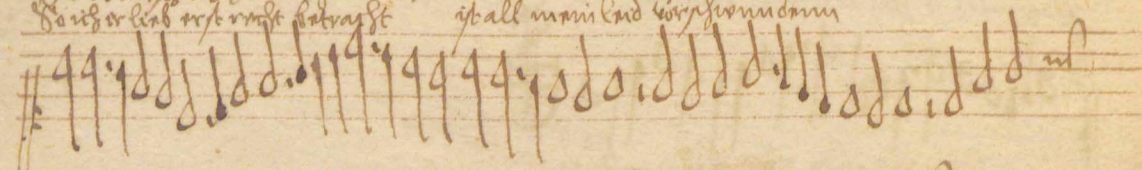 So ich er lieb erst recht betracht ist all mein leid vorschwunndenn